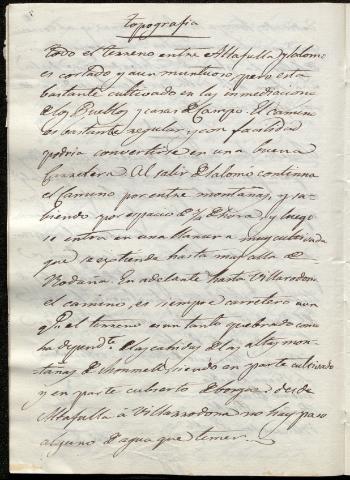 topografia
todo el terreno entre Altafulla y Salomó
es cortado y aun montuoso, pero esta
bastante cultivado en las inmediaciones
de los Pueblos y casas de Campo. El camino
es bastante regular y con facilidad
podria convertirse en una buena
carretera. Al salir de Salomo continua
el Camino por entre montañas, y su-
biendo por espacio de ½ de hora, y luego
se entra en una llanura muy cultivada
que se estiende hasta mas alla de
Rodaña. En adelante hasta Villarodona
el camino, es siempre carretero aun
qe. el terreno es un tanto quebrado como
ha dependte. de las caidas de las altas mon-
tañas de Monmell, siendo en parte cultivado
y en parte cubierto de bosque: desde
Altafulla á Villarrodona no hay paso
alguno de agua que temer.